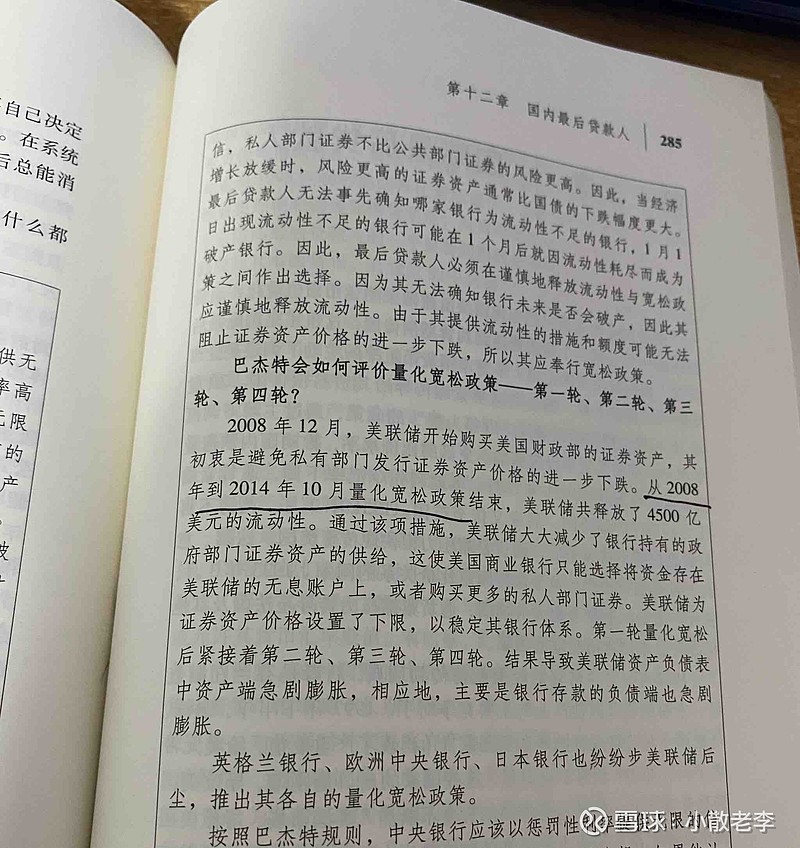 自己决定
。在系统
后总能消
什么都
供无
率高
无限
的
产
第十二章 国内最后贷款人 285
信，私人部门证券不比公共部门证券的风险更高。因此，当经济
增长放缓时，风险更高的证券资产通常比国债的下跌幅度更大。
最后贷款人无法事先确知哪家银行为流动性不足的银行，1月1
日出现流动性不足的银行可能在1个月后就因流动性耗尽而成为
破产银行。因此，最后贷款人必须在谨慎地释放流动性与宽松政
策之间作出选择。因为其无法确知银行未来是否会破产，因此其
应谨慎地释放流动性。由于其提供流动性的措施和额度可能无法
阻止证券资产价格的进一步下跌，所以其应奉行宽松政策。
巴杰特会如何评价量化宽松政策——第一轮、第二轮、第三
轮、第四轮？
2008年12月，美联储开始购买美国财政部的证券资产，其
初衷是避免私有部门发行证券资产价格的进一步下跌。从2008
年到2014年10月量化宽松政策结束，美联储共释放了4500亿
美元的流动性。通过该项措施，美联储大大减少了银行持有的政
府部门证券资产的供给，这使美国商业银行只能选择将资金存在
美联储的无息账户上，或者购买更多的私人部门证券。美联储为
证券资产价格设置了下限，以稳定其银行体系。第一轮量化宽松
后紧接着第二轮、第三轮、第四轮。结果导致美联储资产负债表
中资产端急剧膨胀，相应地，主要是银行存款的负债端也急剧
膨胀。
英格兰银行、欧洲中央银行、日本银行也纷纷步美联储后
尘，推出其各自的量化宽松政策。
按照巴杰特规则，中央银行应该以惩罚性
雪球：小散老李